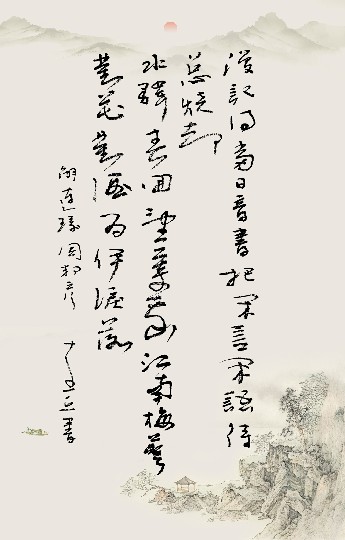 漫記得當日音書把閑言閑語待
總燒却
水驛春回望寄我江南梅萼
對花對酒為伊淚落
解連環周邦彥 書